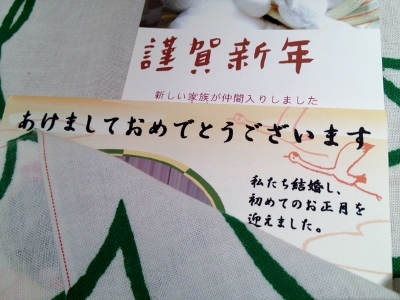 謹賀新年
新しい家族が仲間入りしました
あけましておめでとうございます
私たち結婚し、
初めてのお正月を
迎えました。